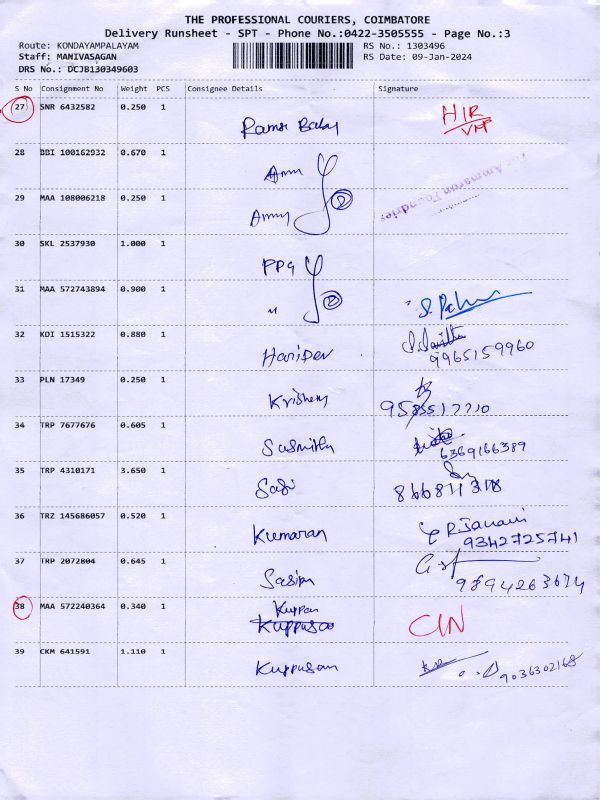 THE PROFESSIONAL COURIERS, COIMBATORE
Delivery Runsheet - SPT - Phone No.:0422-3505555 - Page No.:3
Route: KONDAYAMPALAYAM RS No.: 1303496
Staff: MANIVASAGAN RS Date: 09-Jan-2024
DRS No.: DCJB130349603
S No Consignment No Weight PCS Consignee Details Signature
27 SNR 6432582 0.250 1 Rama Baby HIR
28 BBI 100162932 0.670 1
29 MAA 108006218 0.250 1
30 SKL 2537930 1.000 1 PPG
31 MAA 572743894 0.900 1
32 KDI 1515322 0.880 1 HariDev 9965159960
33 PLN 17349 0.250 1
34 TRP 7677676 0.605 1 Sasmitha 6369166389
35 TRP 4310171 3.650 1
36 TRZ 145686057 0.520 1 Kumaran 9342725741
37 TRP 2072804 0.645 1 9894263674
38 MAA 572240364 0.340 1 CIN
39 CKM 641591 1.110 1 Kuppusam 9036302168